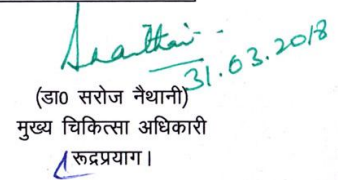 31.03.2018
(डा0 सरोज नैथानी)
मुख्य चिकित्सा अधिकारी
रूद्रप्रयाग।